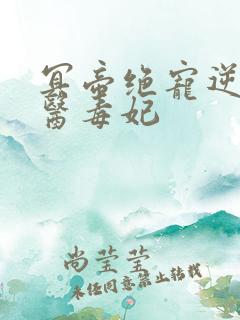 冥帝绝寵逆
醫毒妃
尚莹莹
未任同意禁止转载